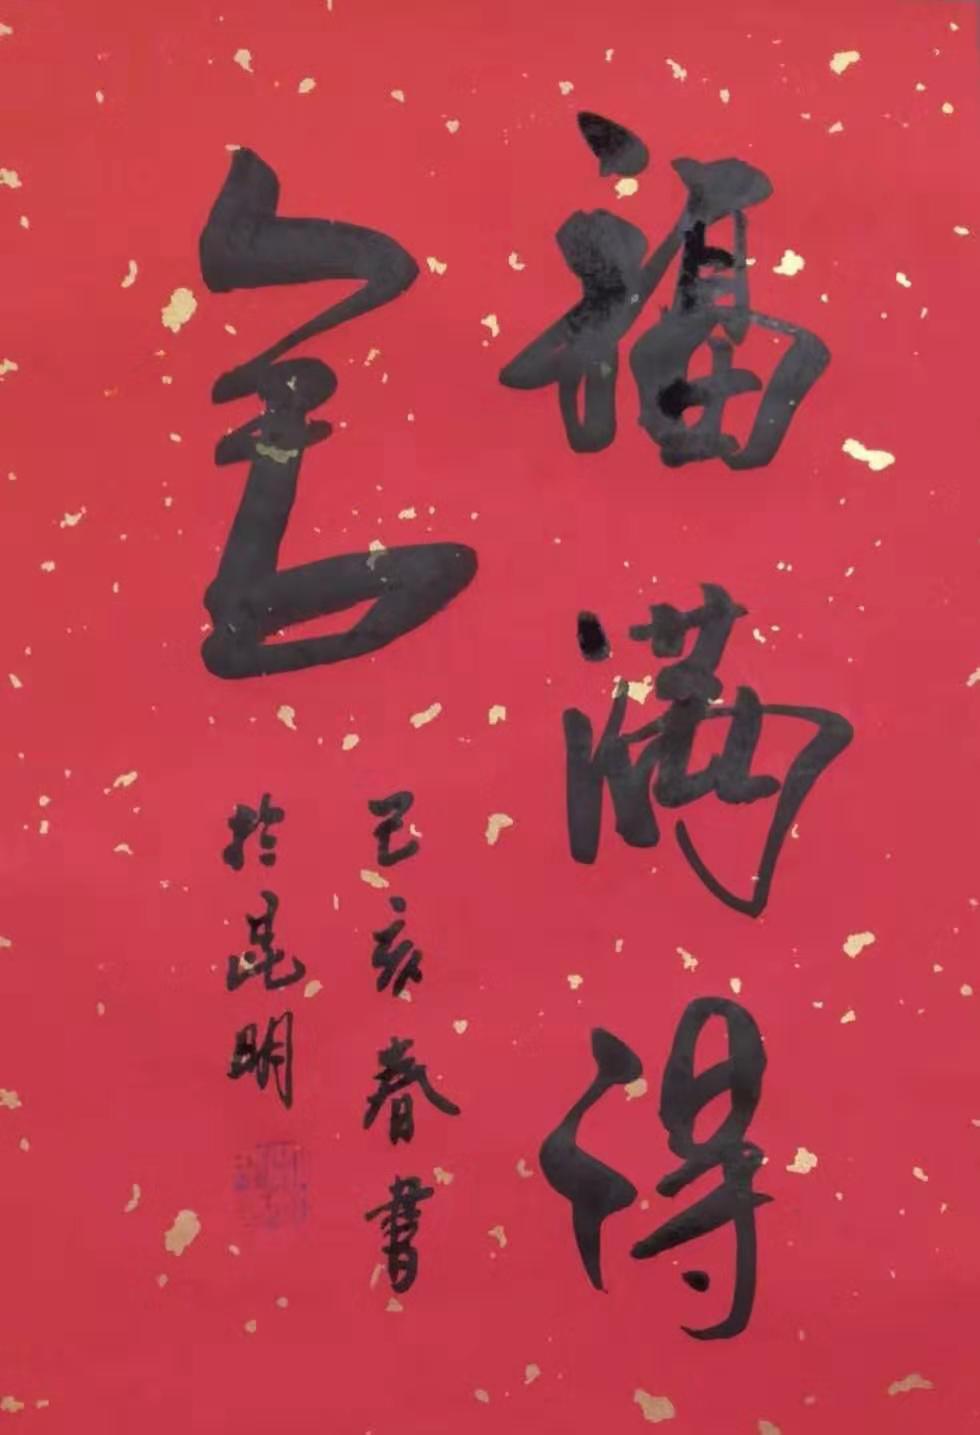 福满得
己亥春書
於昆明